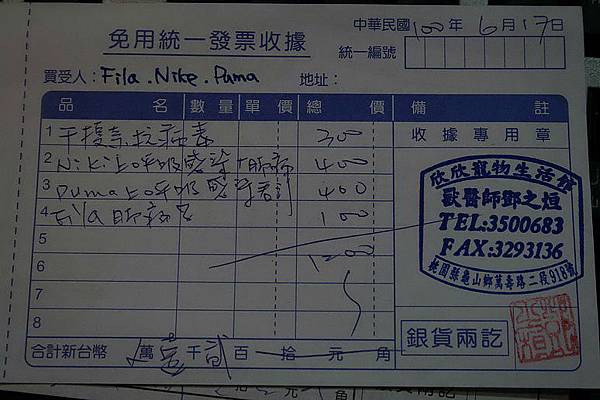 中華民國100年6月17日
免用統一發票收據
統一編號
買受人:Fila.Nike.Puma 地址:
品名 數量 單價 總價 備註
1 干擾素抗病毒 300
收據專用章
2 Niki上呼吸感染 400
3 Puma上呼吸感染 400
4 Fila 100
5
6 1200
7
8
欣欣寵物生活館
獸醫師鄧之烜
TEL:3500683
FAX:3293136
桃園縣龜山鄉萬壽路二段918號
銀貨兩訖
合計新台幣 萬壹千貳百拾元角